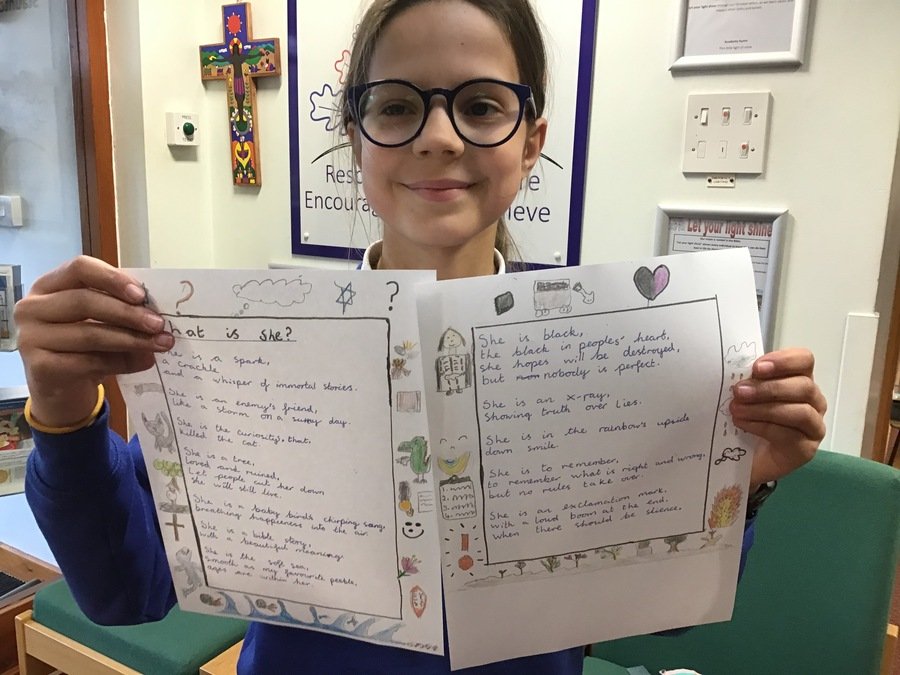 PRESS
Encourage
ieve
Let your light shine
What is she?
She is a spark,
a crackle
and a whisper of immortal stories.
She is an enemy's friend,
like a storm on a sunny day.
She is the curiosity, that,
killed the cat.
She is a tree,
loved and ruined,
Let people cut her down
she will still live.
She is a baby bird's chirping song,
breathing happiness into the air.
She is a bible story,
with a beautiful meaning
She is the soft sea,
smooth as my favourite pebble,
ages are within her.
She is black,
the black in peoples' heart,
she hopes will be destroyed,
but nobody is perfect.
She is an x-ray,
showing truth over lies.
She is in the rainbow's upside
down smile.
She is to remember,
to remember what is right and wrong,
but no rules take over.
She is an exclamation mark,
with a loud boom at the end.
when there should be slience.